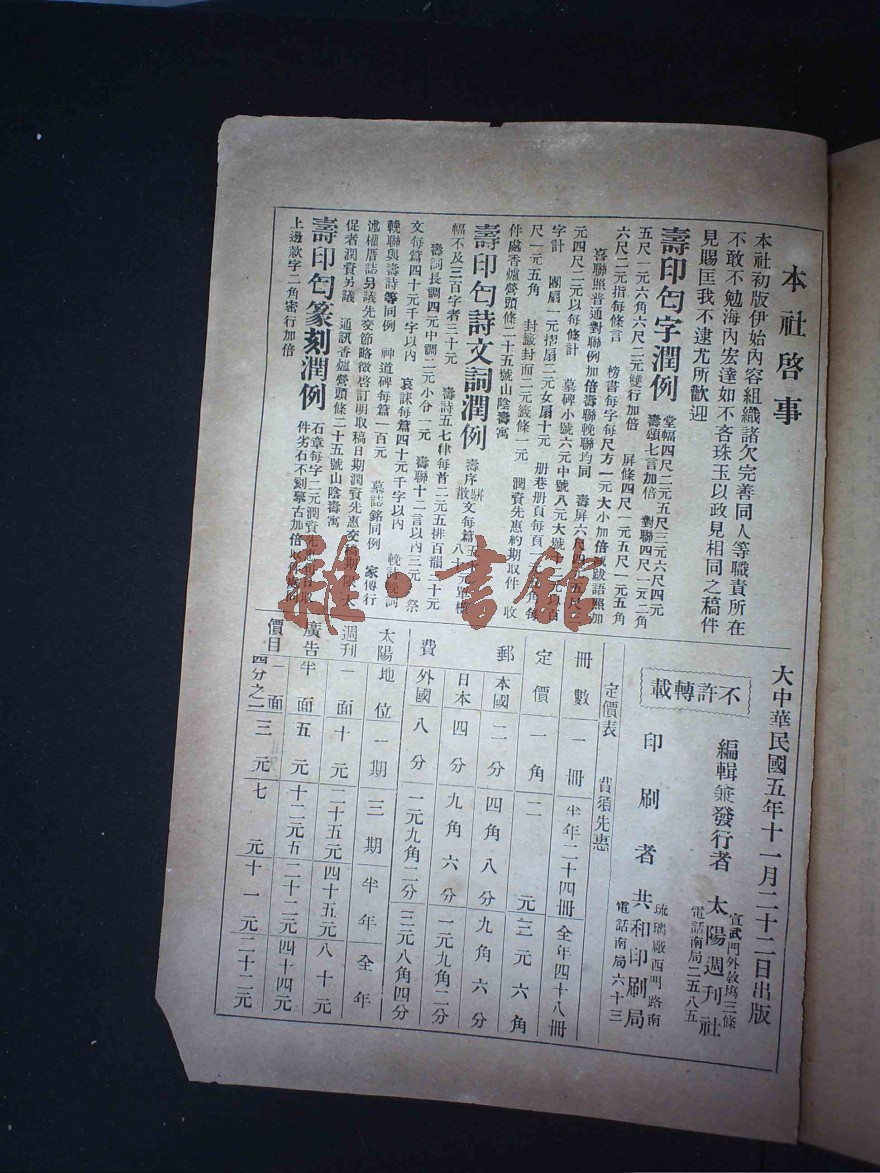 本社啓事
本社初版伊始內容組織諸欠完善同人等職責所在
不敢不勉海內宏達如不吝珠玉以政見相同之稿件
見賜匡我不逮尤所歡迎
壽印匄字潤例
堂幅四尺二元五尺三元六尺四元
壽頌七言加倍 對聯四尺一元二角
五尺一元六角六尺二元雙行加倍 屏條四尺一元五尺一元五角
六尺二元指每條言 榜書每字每尺方一元大小加倍 跋語照加
喜聯照普通對聯例加倍壽聯輓聯均同 壽屏六尺四 五尺
元四尺二元以每條計 墓碑小號六元中號八元大號十
字計 團扇一元摺扇二元女扇十元 册巷册頁每頁
尺一元五角 封籤封面二元籤條一元 潤資先惠約期取件 收
件處香爐營頭條二十五號山陰壽寓
壽印匄詩文詞潤例
壽序駢
散文每篇五 八十元單條
幅不及三百字者三十元 壽詩五七律每首二元五排百韻二十元
壽詞長調四元中調二元小令一元 壽聯十二言以內三元 祭
文每篇四十元千字以內 哀誄每篇四十元千字以內 輓詩輓詞
輓聯與壽詩等同例 神道碑每篇一百元 墓誌銘同例 家傳行
述權厝誌另議先交節略徵啓訂期取稿日期潤資先惠交稿期限
促者潤資另議 通訊香爐營頭條二十五號山陰壽寓
壽印匄篆刻潤例
石章每字二元潤資先惠
件劣石不刻摹古加倍
上邊款字二角密行加倍
大中華民國五年十一月二十二日出版
不許轉載
編輯兼發行者 太陽週刊社
宣武門外敎塲三條
電話南局二五八五
印刷者 共和印刷局
琉璃廠西明路南
電話南局六十三
定價表 費須先惠
冊數 一冊 半年二十四冊 全年四十八冊
定價 一角 二元 三元六角
郵費 本國 二分 四角八分 九角六分
日本 四分 九角六分 一元九角二分
外國 八分 一元九角二分 三元八角四分
太陽週刊廣告價目
地位 一期 三期 半年 全年
一面 十元 二十五元 四十五元 八十元
半面 五元 十二元五 二十二元 四十四元
四分之一面 三元 七元 十一元 二十二元
雜·書館